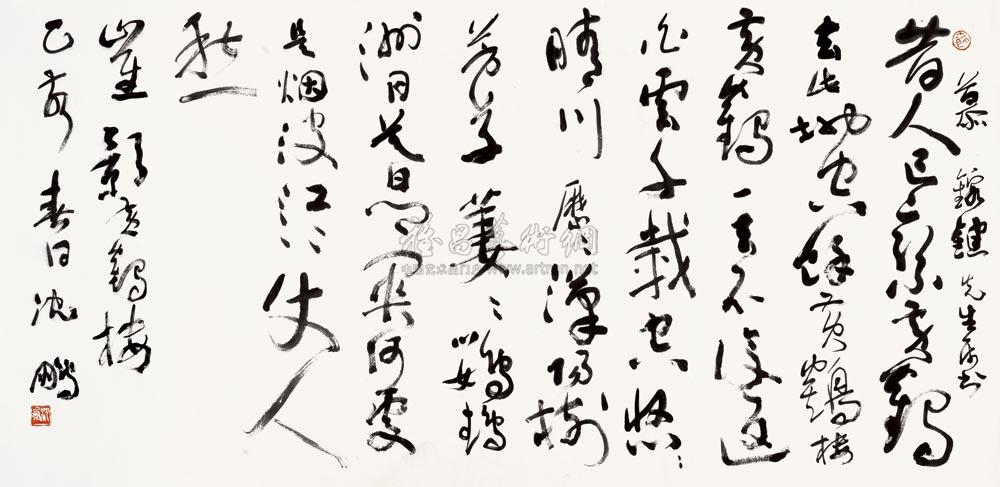 先生
昔人已乘黄鶴
去此地空餘黄鶴樓
黄鶴一去不復返
白雲千載空悠悠
晴川歷歷漢陽樹
芳草萋萋鸚鵡
洲日暮鄉關何處
是烟波江上使人
愁
崔顥黄鶴樓
春日沈鵬
雅昌藝術網
www.artron.net